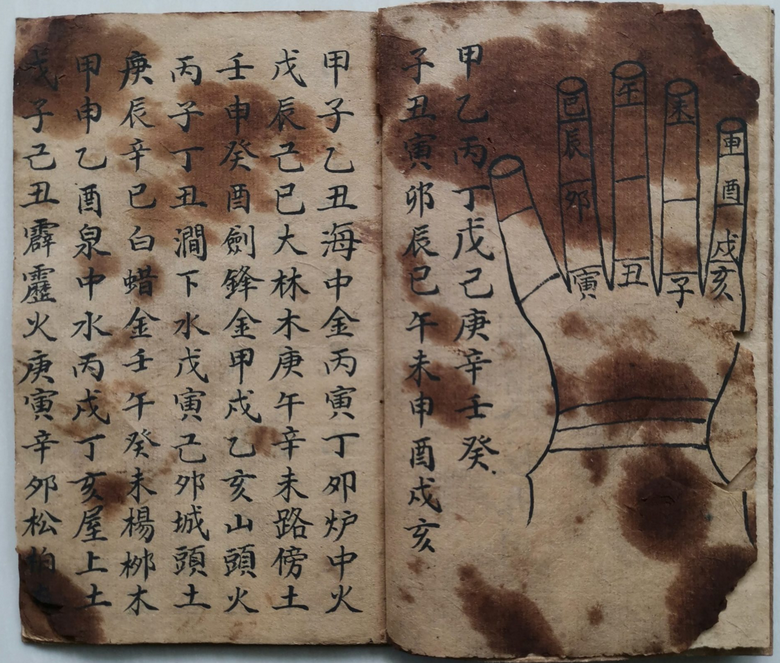 申酉戌亥
未子
午丑
巳辰夘寅
甲乙丙丁戊己庚辛壬癸
子丑寅卯辰巳午未申酉戌亥
甲子乙丑海中金丙寅丁夘炉中火
戊辰己巳大林木庚午辛未路傍土
壬申癸酉劍鋒金甲戌乙亥山頭火
丙子丁丑澗下水戊寅己夘城頭土
庚辰辛巳白蜡金壬午癸未楊柳木
甲申乙酉泉中水丙戌丁亥屋上土
戊子己丑霹靂火庚寅辛夘松柏